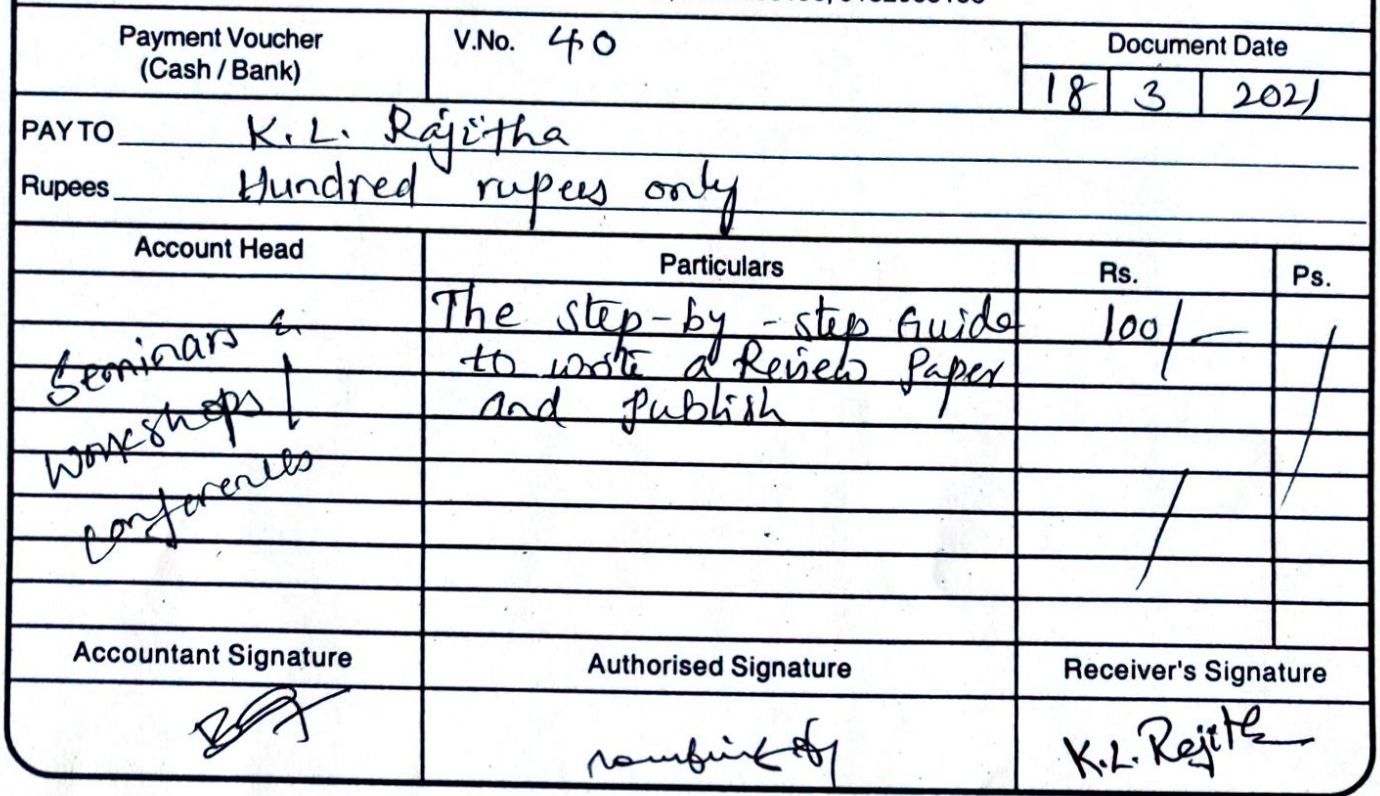 Payment Voucher
(Cash / Bank)
V.No. 40
Document Date
18 3 2021
PAY TO K.L. Rajitha
Rupees Hundred rupees only
Account Head
Particulars
Rs.
Ps.
Seminars &
workshops /
conferences
The step-by-step Guide
to write a Review Paper
and Publish
100/-
Accountant Signature
Authorised Signature
Receiver's Signature
K.L. Rajitha